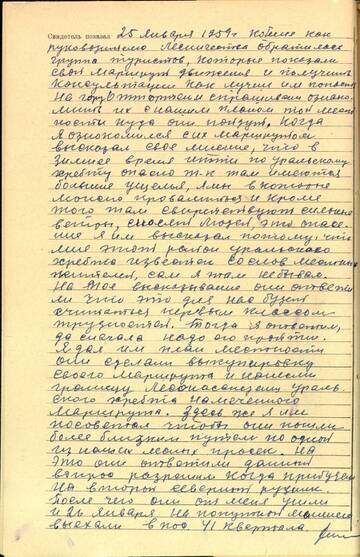 Свидетель показал 25 января 1959 г. ко мне как
руководителю лесничества обратилась
группа туристов, которые показали
свой маршрут движения и получить
консультацию как лучше им попасть
на гору Отортен и спрашивали ознако-
мить их с нашим планом той мест-
ности куда они пойдут. Когда
я ознакомился с их маршрутом
высказал свое мнение, что в
зимнее время идти по уральскому
хребту опасно т-к там имеются
большие ущелья, ямы в которые
можно провалиться и кроме
того там свирепствуют сильные
ветры, сносят людей. Это опасе-
ние я им высказал потому, что
мне этот район уральского
хребта известен со слов местных
жителей, сам я там не бывал.
На мое высказывание они ответи-
ли что это для нас будет
считаться первым классом
трудности. Тогда я ответил,
да сначала надо его пройти.
Я дал им план местности
они сделали выкупировку
своего маршрута и
границу лесонасаждений Ураль-
ского хребта намеченного
маршрута. Здесь же я им
посоветовал чтобы они пошли
более близким путем по одной
из наших малых просек. На
это они ответили данный
вопрос разрешим когда прибудем
на второй северный рудник
после чего они от меня ушли
и 26 января на попутной машине
выехали в пос. 41 квартала